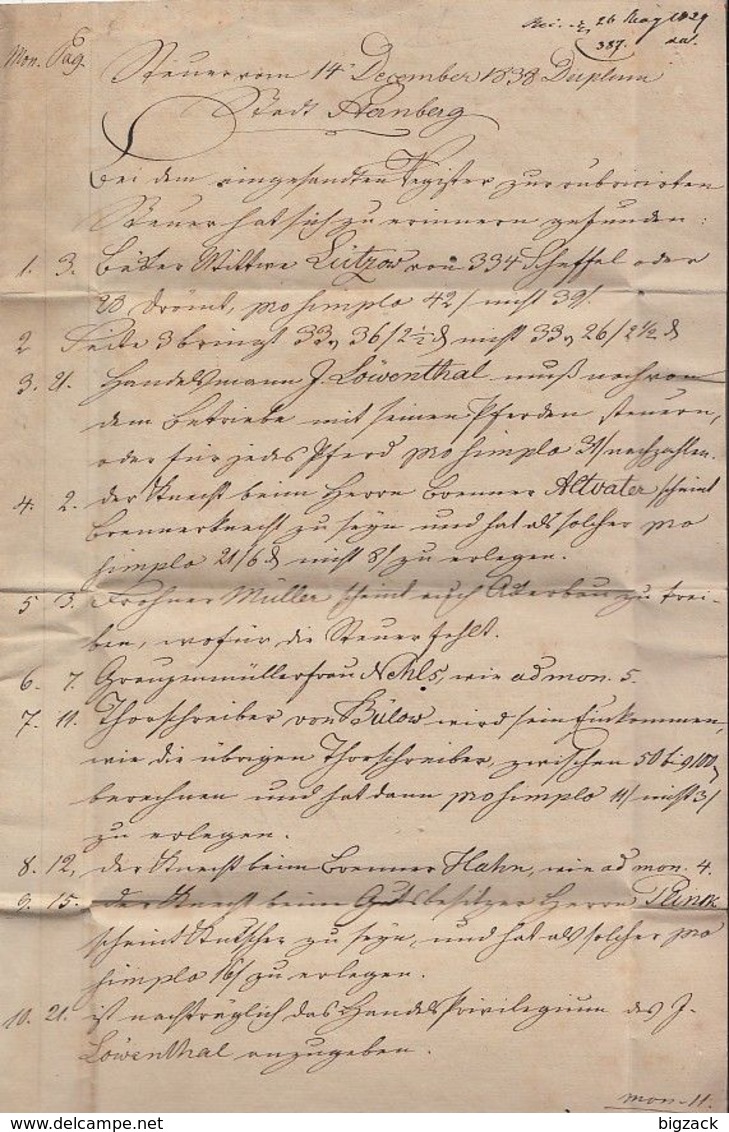 Rec. 26 May 1839
387.
Mon. Pag.
Steuer vom 14t December 1838 Duplum
Stadt Sternberg
Bei dem eingesandten Register zur rubricirten
Steuer hat sich zu erinnern gefunden:
1. 3. Wittwe Lützow von 334 Scheffel oder
28 Drömt, pro simplo 42/ nicht 39/.
2 Seite 3 bringt 33, 36/ 2½ d nicht 33, 26/ 2½ d
3. 21. Handelsmann J. Löwenthal muß noch von
dem Betriebe mit seinen Pferden steuern,
oder für jedes Pferd pro simplo nachzahlen.
4. 2. der Knecht beim Herrn Brenner Altvater scheint
Brennerknecht zu seyn und hat als solcher pro
simplo 21/6 d nicht 8/ zu erlegen.
5 3. Müller scheint auch Ackerbau zu trei-
ben, wofür die Steuer fehlt.
6. 7. Graupenmüllerfrau Nehls, wie ad mon. 5.
7. 11. Thorschreiber von Bülow wird sein Einkommen,
wie die übrigen Thorschreiber, zwischen 50 bis 100
berechnen und hat dann pro simplo 4/ nicht 3/
zu erlegen.
8. 12, der Knecht beim Brenner Hahn, wie ad mon. 4.
9. 15. der Knecht beim Gutsbesitzer Herrn
scheint Kutscher zu seyn, und hat als solcher pro
simplo 16/ zu erlegen.
10. 21. ist nachträglich das Handelsprivilegium des J.
Löwenthal anzugeben.
mon. 11.
delcampe.net
bigzack